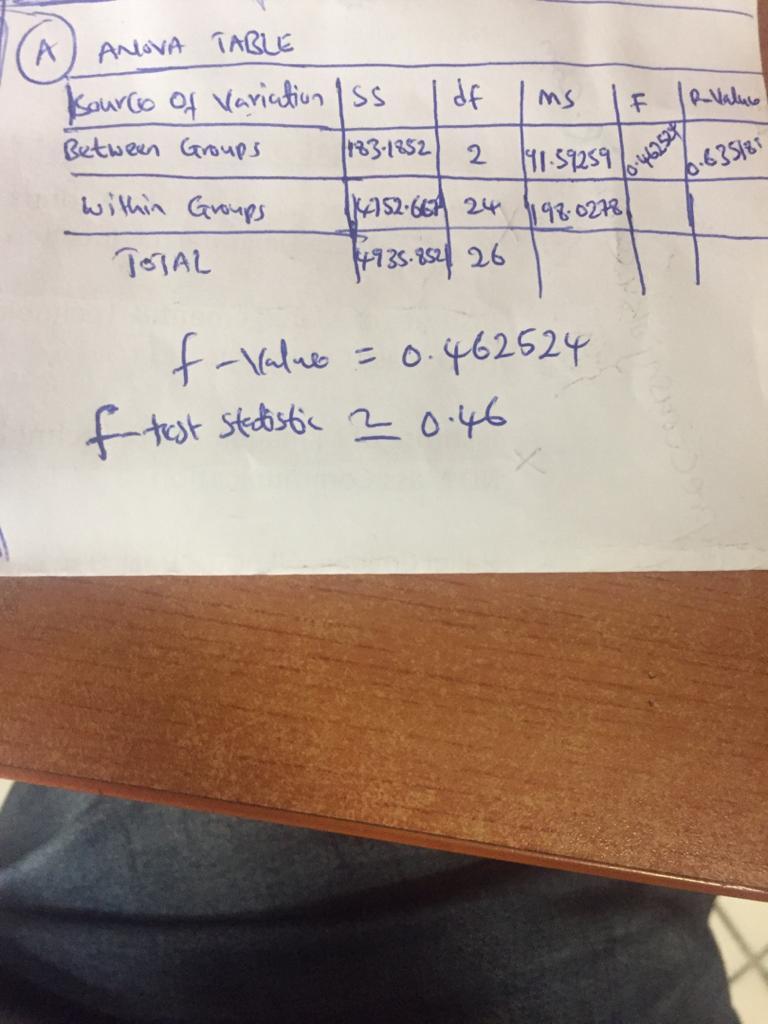 A ANOVA TABLE
Source Of Variation SS df ms F P-Value
Between Groups 183.1852 2 91.59259 0.462524 0.635181
Within Groups 4752.667 24 198.0278
TOTAL 4935.852 26
f-Value = 0.462524
f-test statistic ≃ 0.46